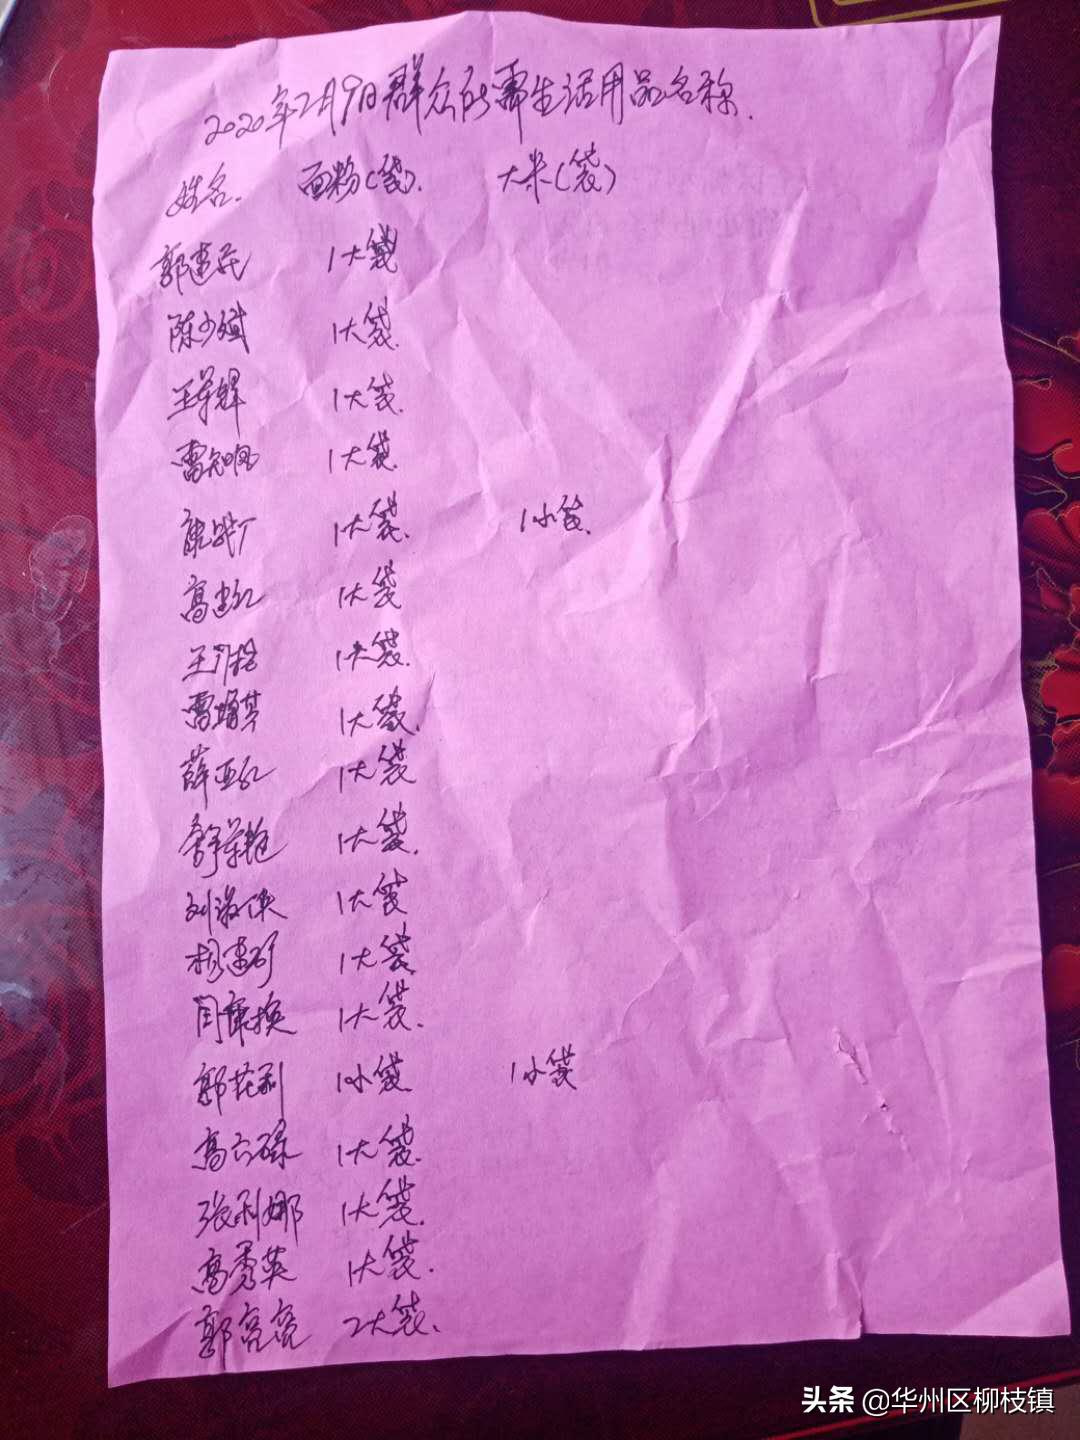 2020年2月9日群众所需生活用品名称.
姓名. 面粉(袋). 大米(袋)
郭建民 1大袋
陈少斌 1大袋.
王军辉 1大袋.
雷 1大袋.
康战厂 1大袋. 1小袋.
高建红 1大袋
王 1大袋.
雷 1大袋.
薛亚红 1大袋
1大袋.
刘淑侠 1大袋
杨建矿 1大袋.
闫康换 1大袋.
郭花利 1小袋. 1小袋
高六禄 1大袋.
张利娜 1大袋.
高秀英 1大袋.
郭亮亮 2大袋.
头条 @华州区柳枝镇